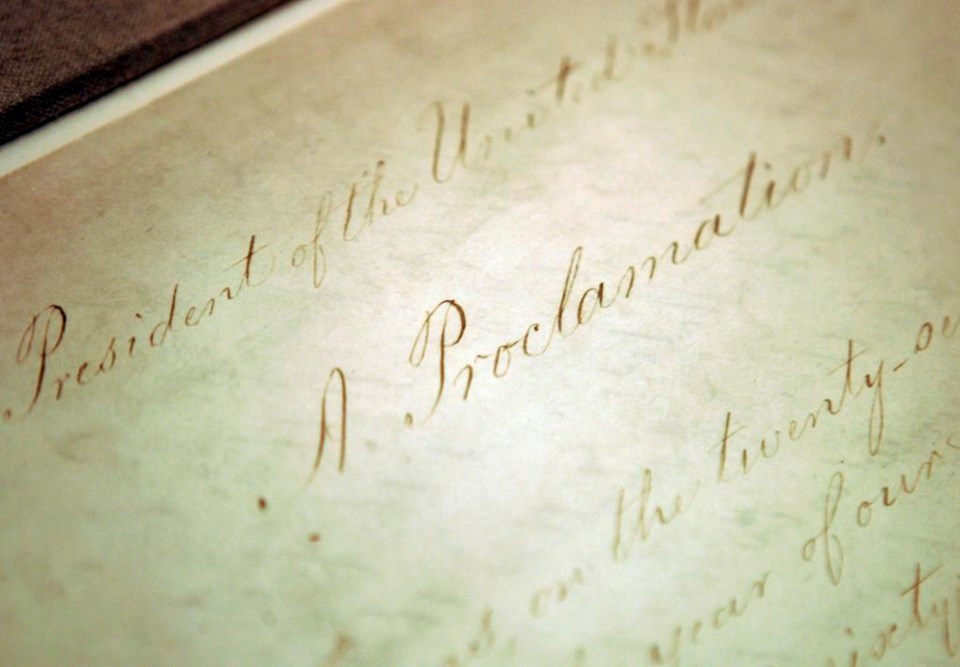 President of the United Sta
A Proclamation.
on the twenty-se
year of our
ixty